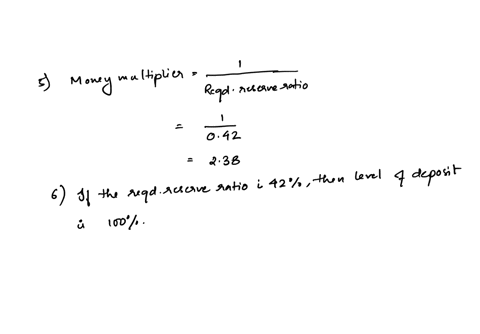 5) Money multiplier = 1 / Reqd. reserve ratio
= 1 / 0.42
= 2.38
6) If the reqd. reserve ratio i 42%, then level of deposit
is 100%.